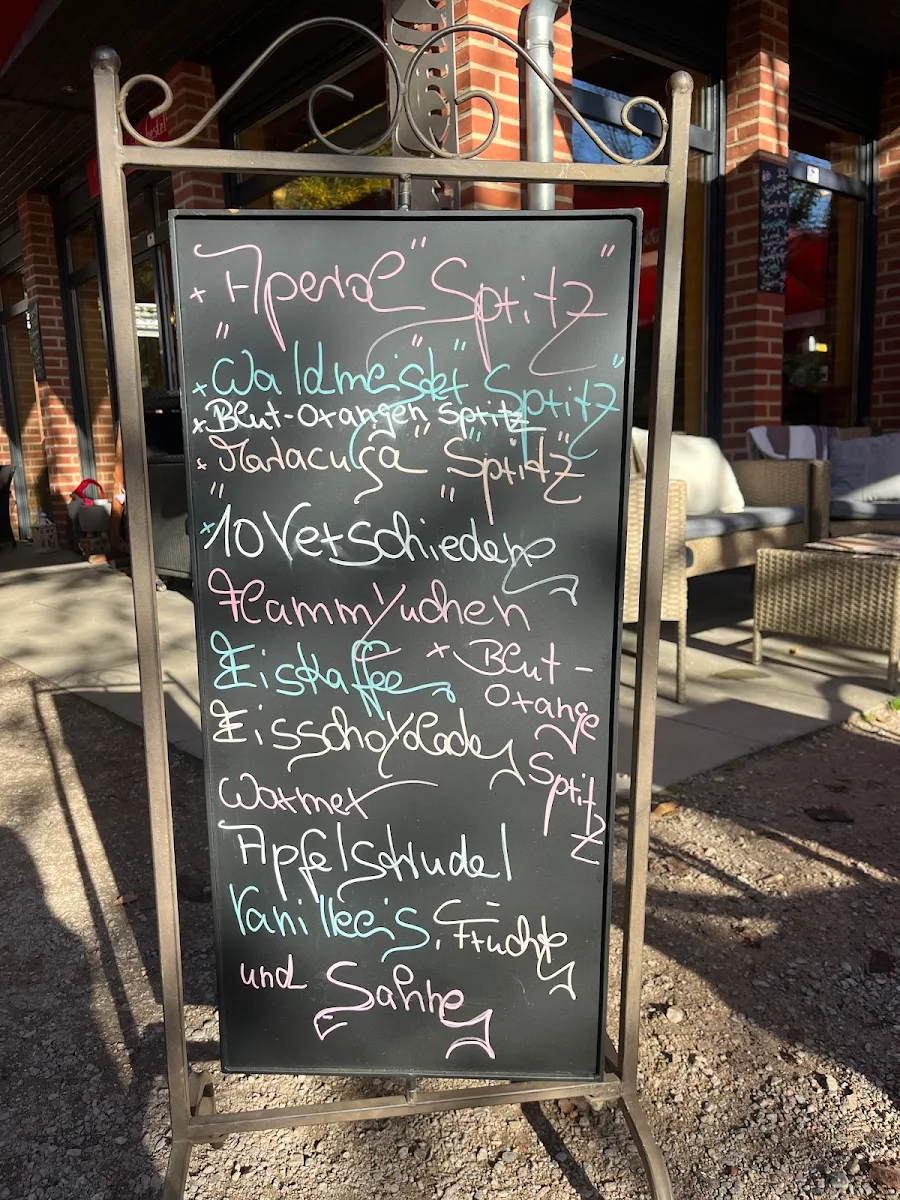 x "Aperol" "Spritz"
x "Waldmeister" "Spritz"
x Blut-Orangen Spritz
x "Maracuja" "Spritz"
x 10 Verschiedene
Flammkuchen
Eiskaffee
x Blut-
Orange
Spritz
Eisschokolade
Warmer
Apfelstrudel
Vanilleeis, Früchte
und Sahne